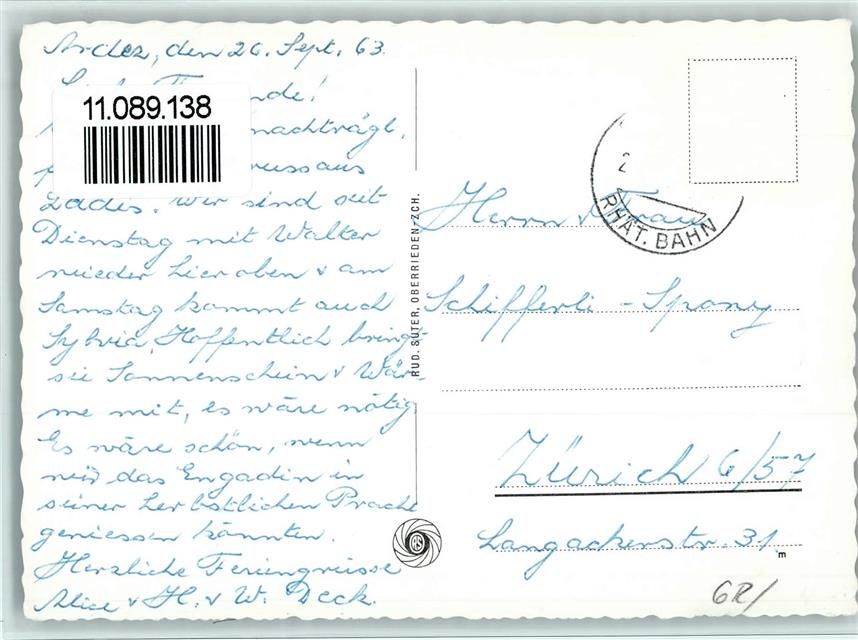 Ardez, den 26. Sept. 63.
nde!
11.089.138
nachträgl.
russ aus
Wir sind seit
Dienstag mit Walter
wieder hier oben & am
Samstag kommt auch
Sylvia. Hoffentlich bringt
sie Sonnenschein & Wär-
me mit, es wäre nötig.
Es wäre schön, wenn
wir das Engadin in
seiner herbstlichen Pracht
geniessen könnten.
Herzliche Feriengrüsse
Alice & H. & W. Deck.
RUD. SUTER, OBERRIEDEN-ZCH.
RHÄT. BAHN
Herrn & Frau
Schifferli - Spony
Zürich 6/57
Langackerstr. 31
m
GR/